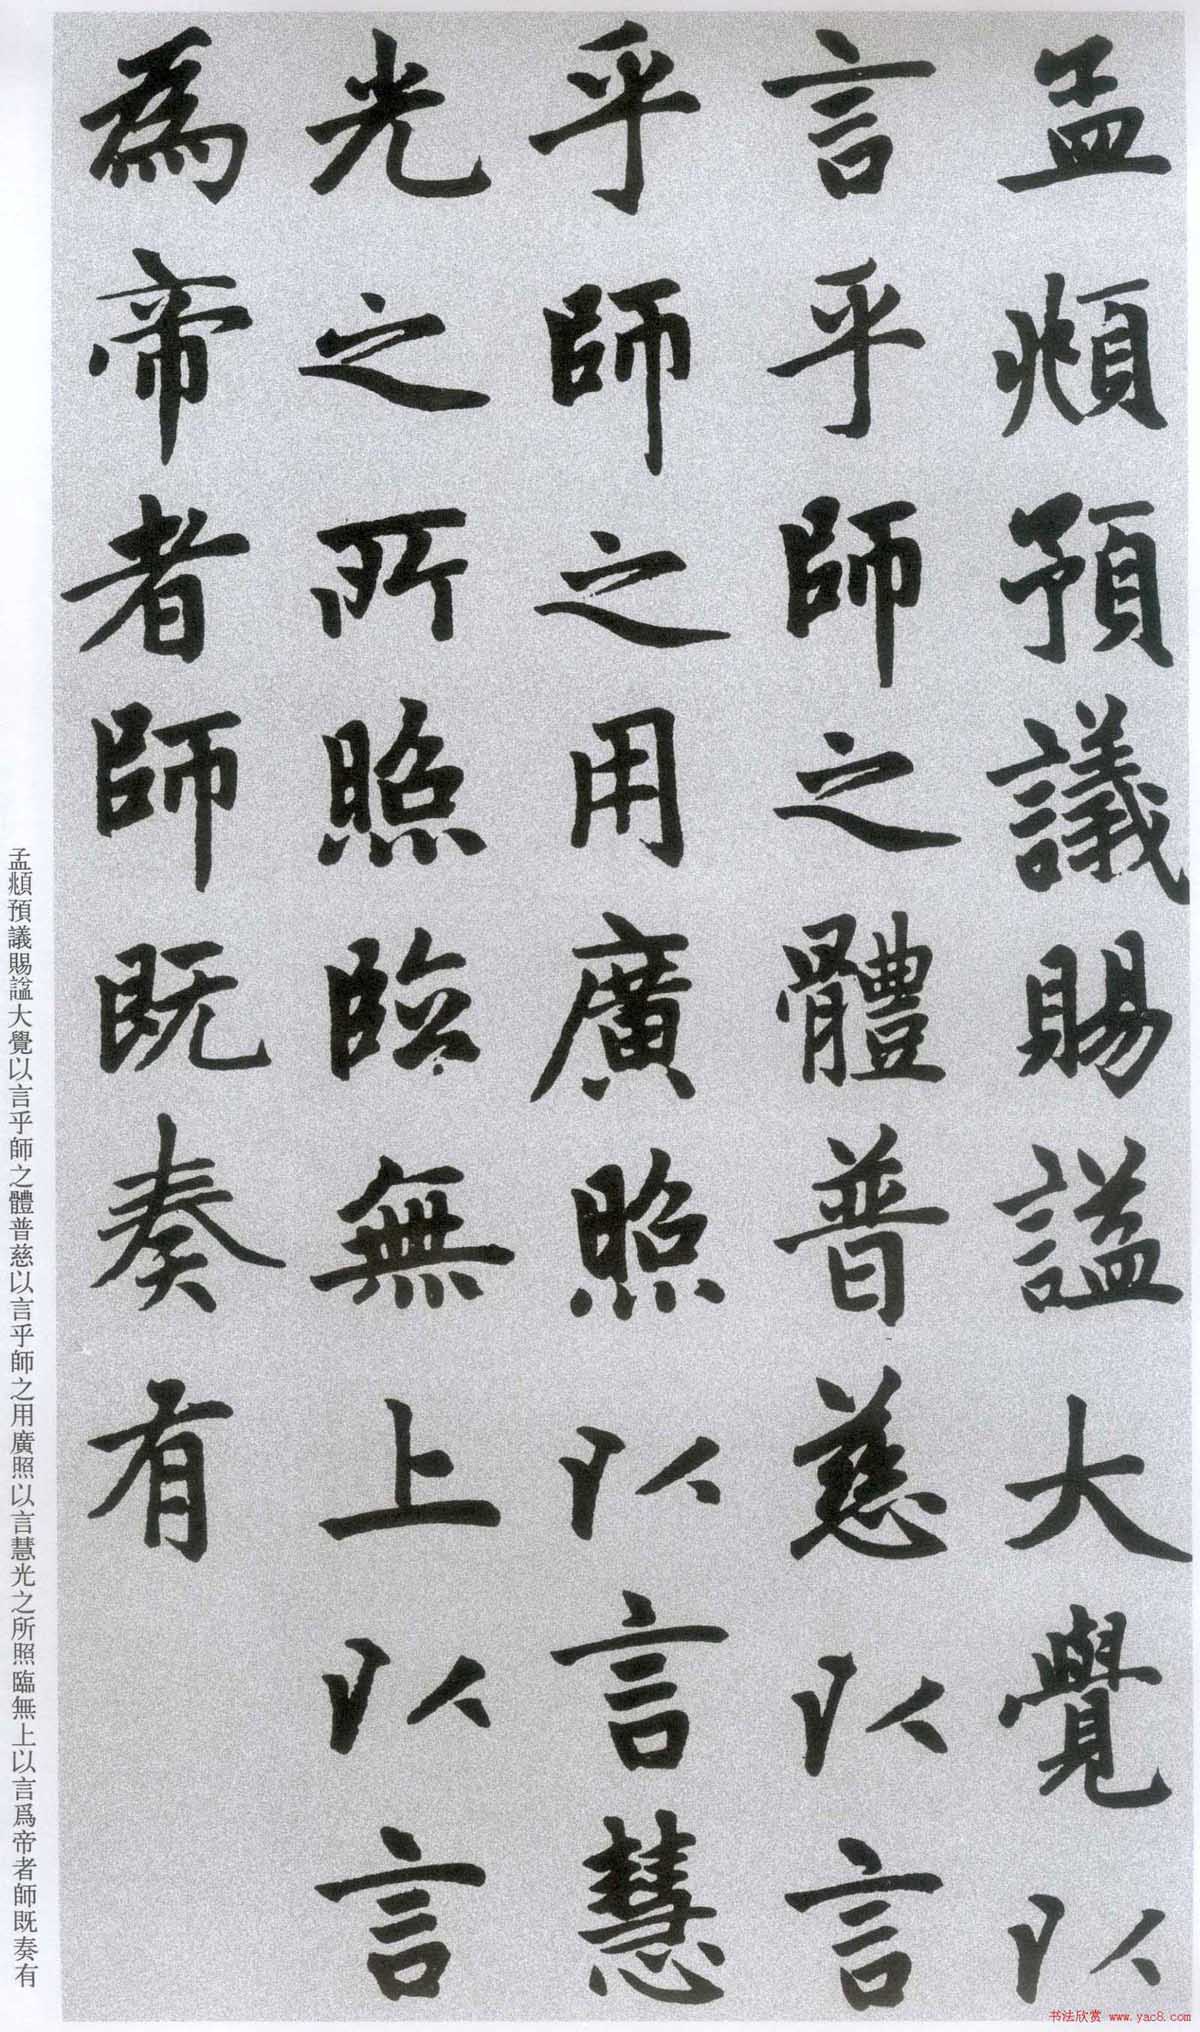 孟頫預議賜謚大覺以
言乎師之體普慈以言
乎師之用廣照以言慧
光之所照臨無上以言
為帝者師既奏有
孟頫預議賜謚大覺以言乎師之體普慈以言乎師之用廣照以言慧光之所照臨無上以言爲帝者師既奏有
书法欣赏 www.yac8.com